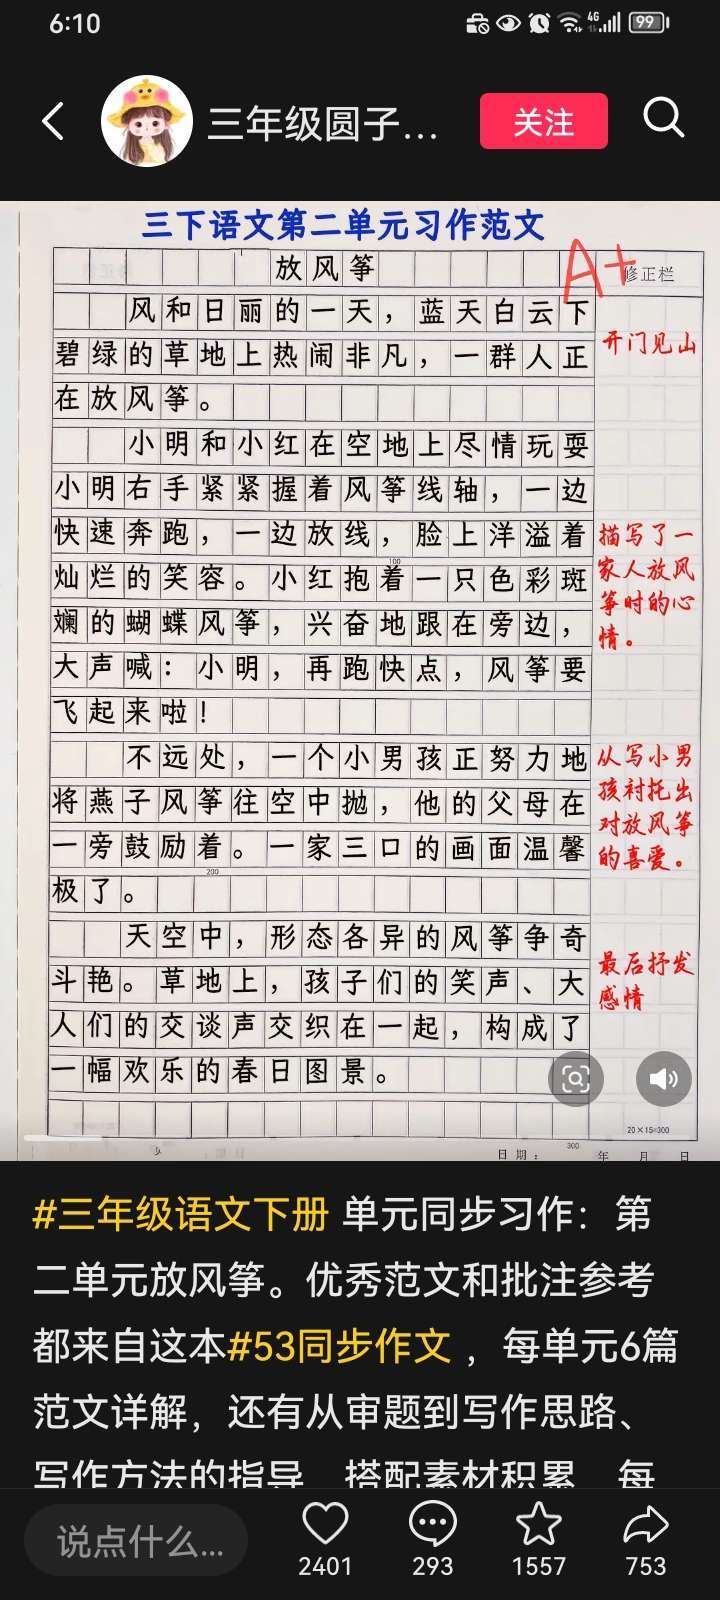 6:10
4G
99
三年级圆子...
关注
三下语文第二单元习作范文
放风筝
A+
修正栏
风和日丽的一天，蓝天白云下
碧绿的草地上热闹非凡，一群人正
在放风筝。
开门见山
小明和小红在空地上尽情玩耍
小明右手紧紧握着风筝线轴，一边
快速奔跑，一边放线，脸上洋溢着
100
灿烂的笑容。小红抱着一只色彩斑
斓的蝴蝶风筝，兴奋地跟在旁边，
大声喊：小明，再跑快点，风筝要
飞起来啦！
描写了一
家人放风
筝时的心
情。
不远处，一个小男孩正努力地
将燕子风筝往空中抛，他的父母在
一旁鼓励着。一家三口的画面温馨
200
极了。
从写小男
孩衬托出
对放风筝
的喜爱。
天空中，形态各异的风筝争奇
斗艳。草地上，孩子们的笑声、大
人们的交谈声交织在一起，构成了
一幅欢乐的春日图景。
最后抒发
感情
20×15=300
300
日期： 年 月 日
#三年级语文下册 单元同步习作：第
二单元放风筝。优秀范文和批注参考
都来自这本#53同步作文 ，每单元6篇
范文详解，还有从审题到写作思路、
写作方法的指导 搭配素材积累 每
说点什么...
2401
293
1557
753